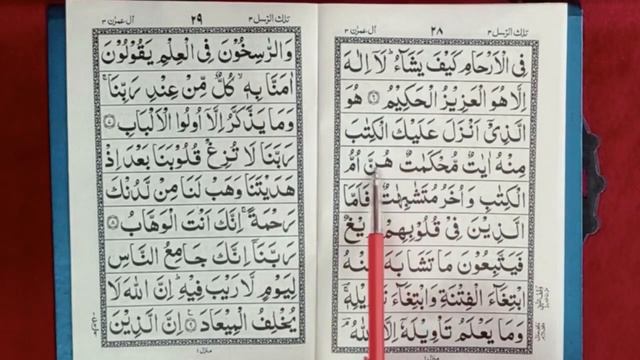 تلك الرسل ٣
٢٨
آل عمرٰن ٣
فِی الْاَرْحَامِ كَیْفَ یَشَآءُ ؕ لَاۤ اِلٰهَ
اِلَّا هُوَ الْعَزِیْزُ الْحَكِیْمُ ﴿۶﴾ هُوَ
الَّذِیْۤ اَنْزَلَ عَلَیْكَ الْكِتٰبَ
مِنْهُ اٰیٰتٌ مُّحْكَمٰتٌ هُنَّ اُمُّ
الْكِتٰبِ وَ اُخَرُ مُتَشٰبِهٰتٌ ؕ فَاَمَّا
الَّذِیْنَ فِیْ قُلُوْبِهِمْ
فَیَتَّبِعُوْنَ مَا تَشَابَهَ
ابْتِغَآءَ الْفِتْنَةِ وَ ابْتِغَآءَ
وَ مَا یَعْلَمُ تَاْوِیْلَهٗۤ اِلَّا اللّٰهُ ۘ
تلك الرسل ٣
٢٩
آل عمرٰن ٣
وَ الرّٰسِخُوْنَ فِی الْعِلْمِ یَقُوْلُوْنَ
اٰمَنَّا بِهٖ ۙ كُلٌّ مِّنْ عِنْدِ رَبِّنَا ۚ
وَ مَا یَذَّكَّرُ اِلَّاۤ اُولُوا الْاَلْبَابِ ﴿۷﴾
رَبَّنَا لَا تُزِغْ قُلُوْبَنَا بَعْدَ اِذْ
هَدَیْتَنَا وَ هَبْ لَنَا مِنْ لَّدُنْكَ
رَحْمَةً ۚ اِنَّكَ اَنْتَ الْوَهَّابُ ﴿۸﴾
رَبَّنَاۤ اِنَّكَ جَامِعُ النَّاسِ
لِیَوْمٍ لَّا رَیْبَ فِیْهِ ؕ اِنَّ اللّٰهَ لَا
یُخْلِفُ الْمِیْعَادَ ﴿۹﴾ اِنَّ الَّذِیْنَ